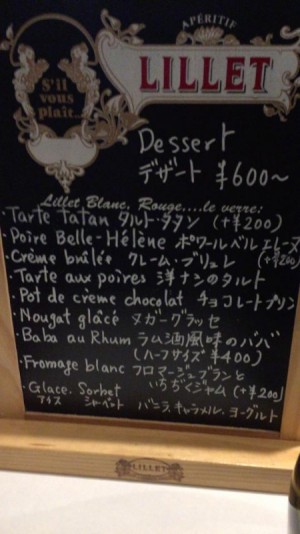 APÉRITIF
LILLET
S'il
vous
plaît...
Dessert
デザート ¥600~
Lillet Blanc, Rouge....le verre:
・Tarte tatan タルト・タタン (+¥200)
・Poire Belle-Hélène ポワールベルエレーヌ
・Crème brûlée クレーム・ブリュレ (+¥200)
・Tarte aux poires 洋ナシのタルト
・Pot de crème chocolat チョコレートプリン
・Nougat glacé ヌガーグラッセ
・Baba au Rhum ラム酒風味のババ
(ハーフサイズ ¥400)
・Fromage blanc フロマージュブランと
いちぢくジャム (+¥200)
・Glace. Sorbet
アイス シャーベット バニラ、キャラメル、ヨーグルト
LILLET